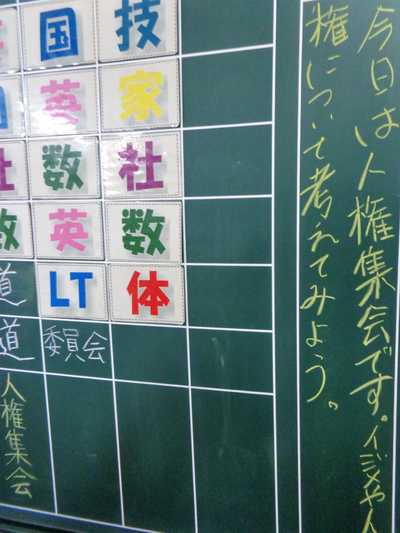 今日は人権集会です。イジメや人
権について考えてみよう。
国 技
英 家
社 数 社
数 英 数
道 LT 体
道 委員会
人権集会